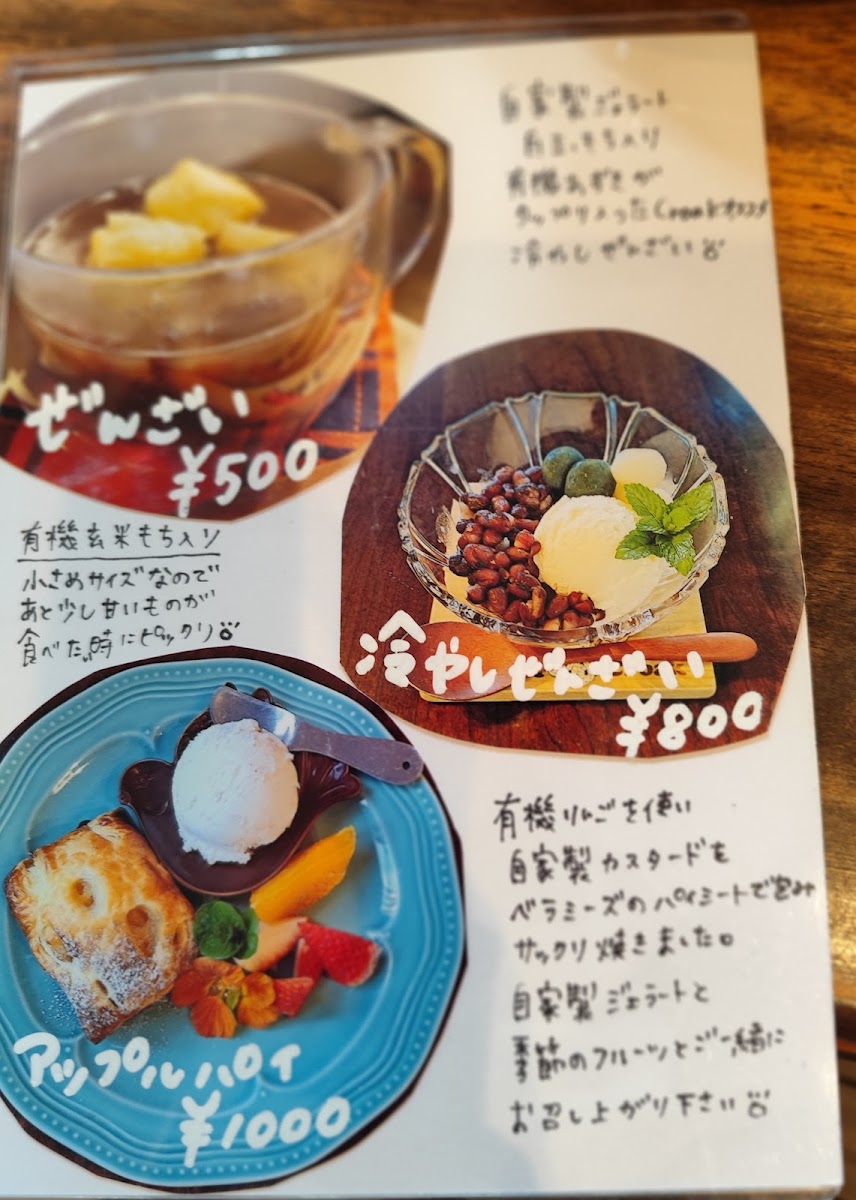 自家製ジェラート
白玉、もち入り
有機あずきが
タップリ入った
冷やしぜんざい
ぜんざい
¥500
有機玄米もち入り
小さめサイズなので
あと少し甘いものが
食べた時にピッタリ
冷やしぜんざい
¥800
有機りんごを使い
自家製カスタードを
ベラミーズのパイシートで包み
サックリ焼きました。
自家製ジェラートと
季節のフルーツとご一緒に
お召し上がり下さい
アップルパイ
¥1000